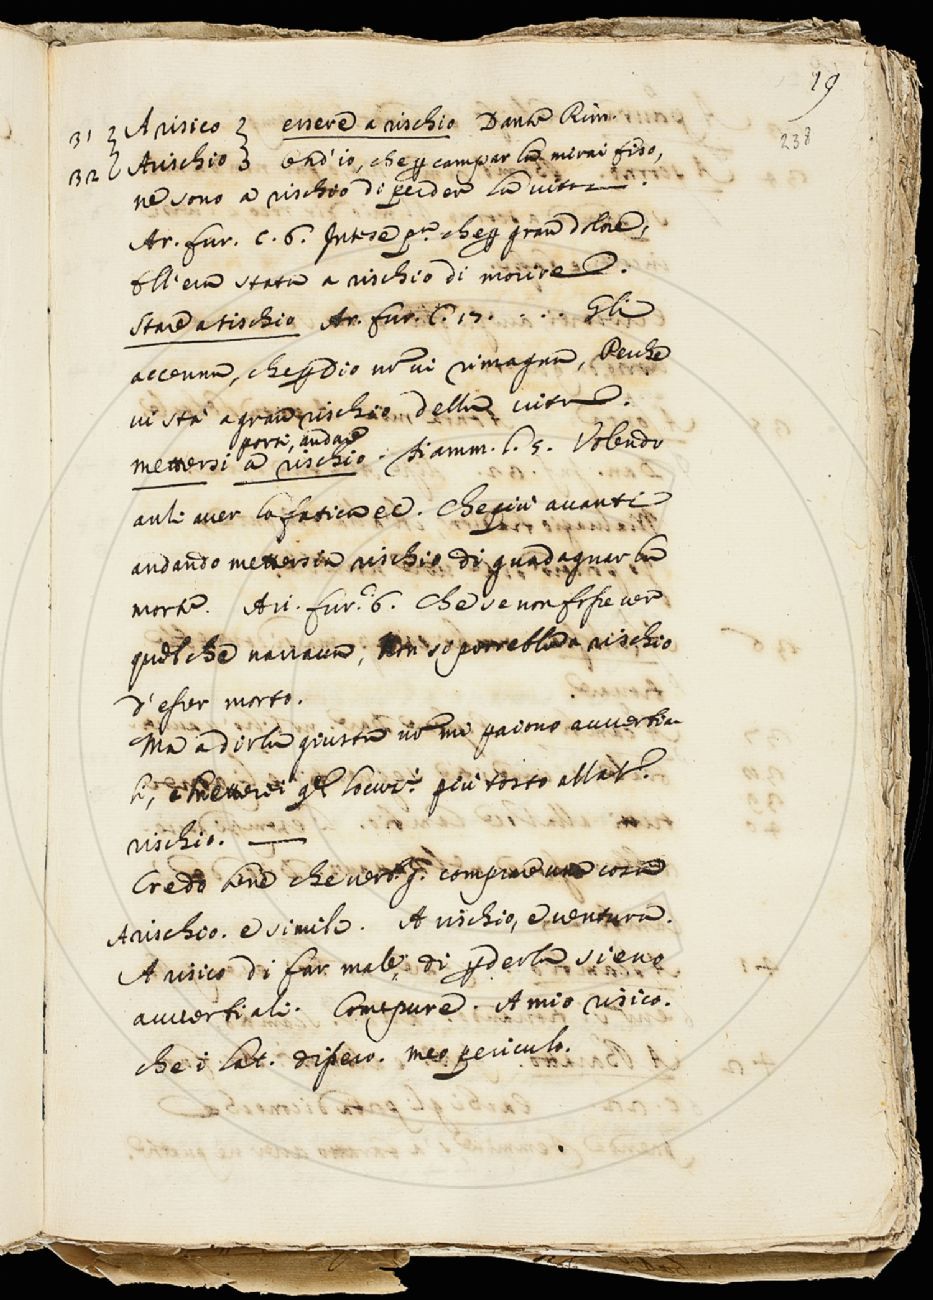 19
238
31 A risico essere a rischio Dante Rim.
32 Arischio ond'io, che p campar la mirai fiso,
ne sono a rischio di perder la vita.
Ar. fur. c. 6. Intese pa. che p gran dolore,
Ell'era stata a rischio di morire.
Stare a rischio Ar. fur. C. 17. . . Gli
accenna, che p dio nō vi rimagna, Perche
vi sta a gran rischio della vita.
porsi, andare
mettersi a rischio. fiamm. l. 5. Volendo
anti aver la fatica ec. che più avanti
andando mettersi a rischio di guadagnar la
morte. Ari. fur. 6. Che se non fosse ver
quel che narrava, Non si porrebbe a rischio
d'esser morto.
Ma a dirla giusta nō mi paiono avverbia-
li, e metterei locuz.i più tosto alla V.
rischio.
Credo bene che verb. g. comprare una cosa
Arischio. e simile. A rischio, e ventura.
A risico di far male, di pderla sieno
avverbiali. Come pure. A mio risico.
che i Lat. dissero. meo periculo.